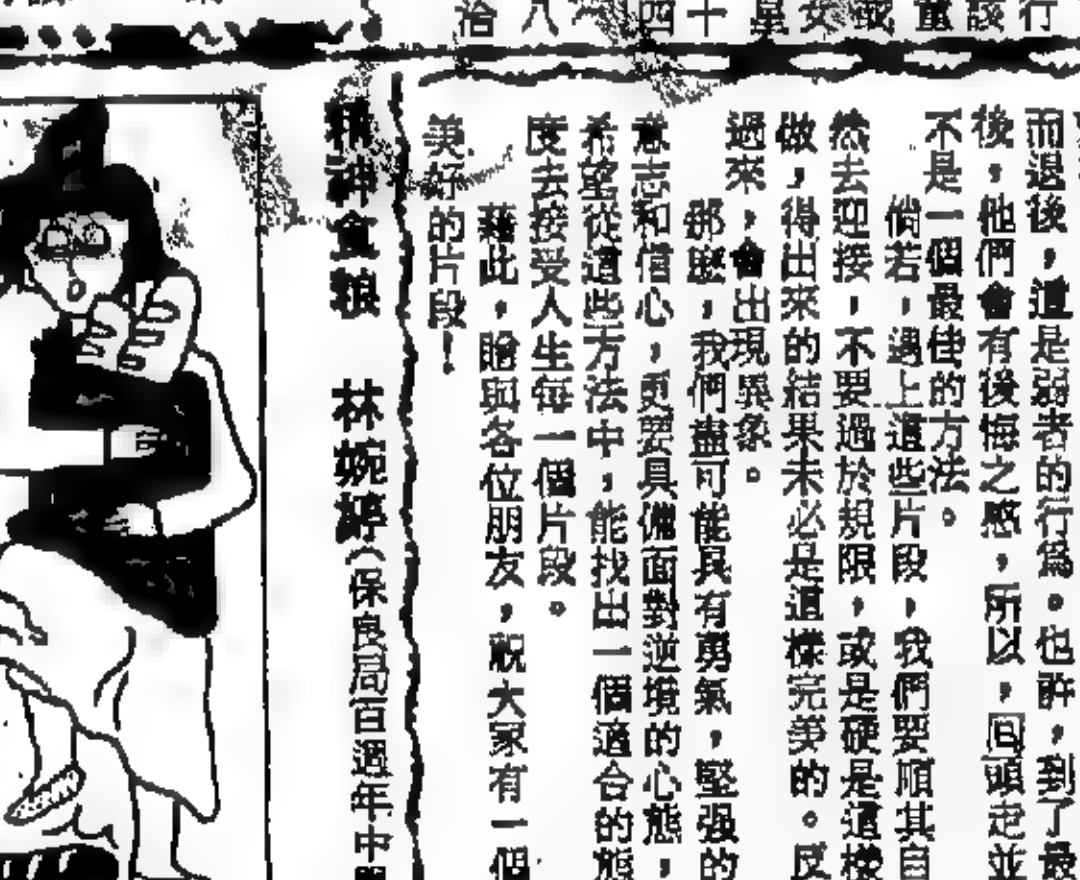 行該童戲女星十四 八 洽
而退後，這是弱者的行為。也許，到了最
後，他們會有後悔之感，所以，回頭走並
不是一個最佳的方法。
倘若，遇上這些片段，我們要順其自
然去迎接，不要過於規限，或是硬是這樣
做，得出來的結果未必是這樣完美的。反
過來，會出現異象。
那麼，我們盡可能具有勇氣，堅强的
意志和信心，更要具備面對逆境的心態，
希望從這些方法中，能找出一個適合的態
度去接受人生每一個片段。
藉此，贈與各位朋友，祝大家有一個
美好的片段！
精神食粮 林婉婷（保良局百週年中